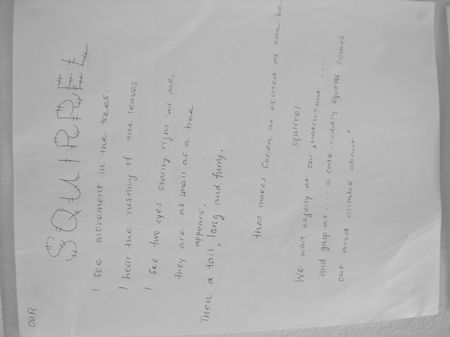 OUR
SQUIRREL
I see movement in the trees.
I hear the rustling of the leaves
I see two eyes staring right at me,
they are as small as a bee
appears,
Then a tail, long and furry,
that makes Cocoa as excited as can be
squirrel
We wait eagerly at our watch-out ....
and gasp as.... a cute cuddly squirrel comes
out and climbs about!